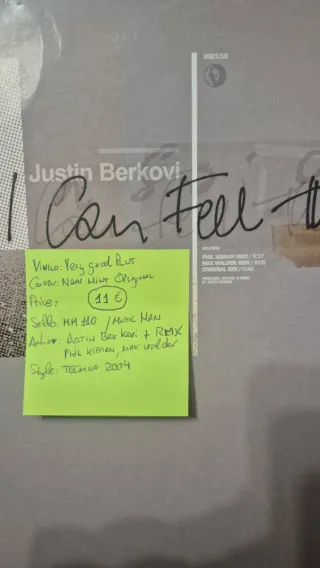 MM110
Justin Berkovi
I Can Feel
PHIL KIERAN RMX
MAX WALDER RMX
ORIGINAL MIX
Vinilo: Very good Plus
Cover: Near Mint Original
Price: 11 €
Sello: MM 110 / MUSIC MAN
JUSTIN BERKOVI + RMX
PHIL KIERAN, MAX WALDER
Style: TECHNO 2004